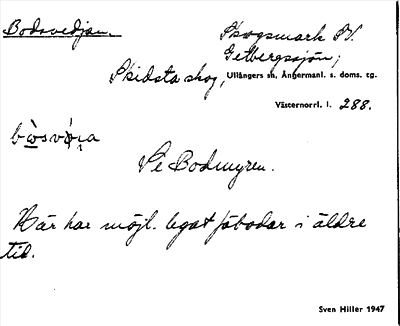 Bodsvedjan.
Skogsmark SV.
Getbergssjön;
Skidsta skog, Ullångers sn, Ångermanl. s. doms. tg.
Västernorrl. l. 288.
Se Bodmyren.
Här har möjl. legat fäbodar i äldre
tid.
Sven Hiller 1947